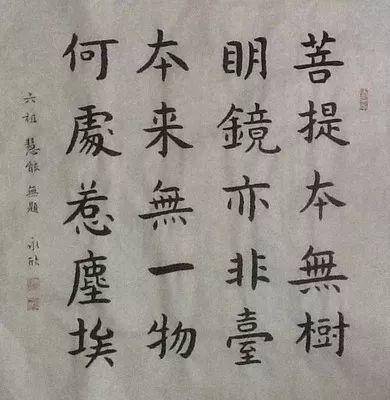 菩提本無樹
明鏡亦非臺
本来無一物
何處惹塵埃
六祖 慧能 無題 永欣